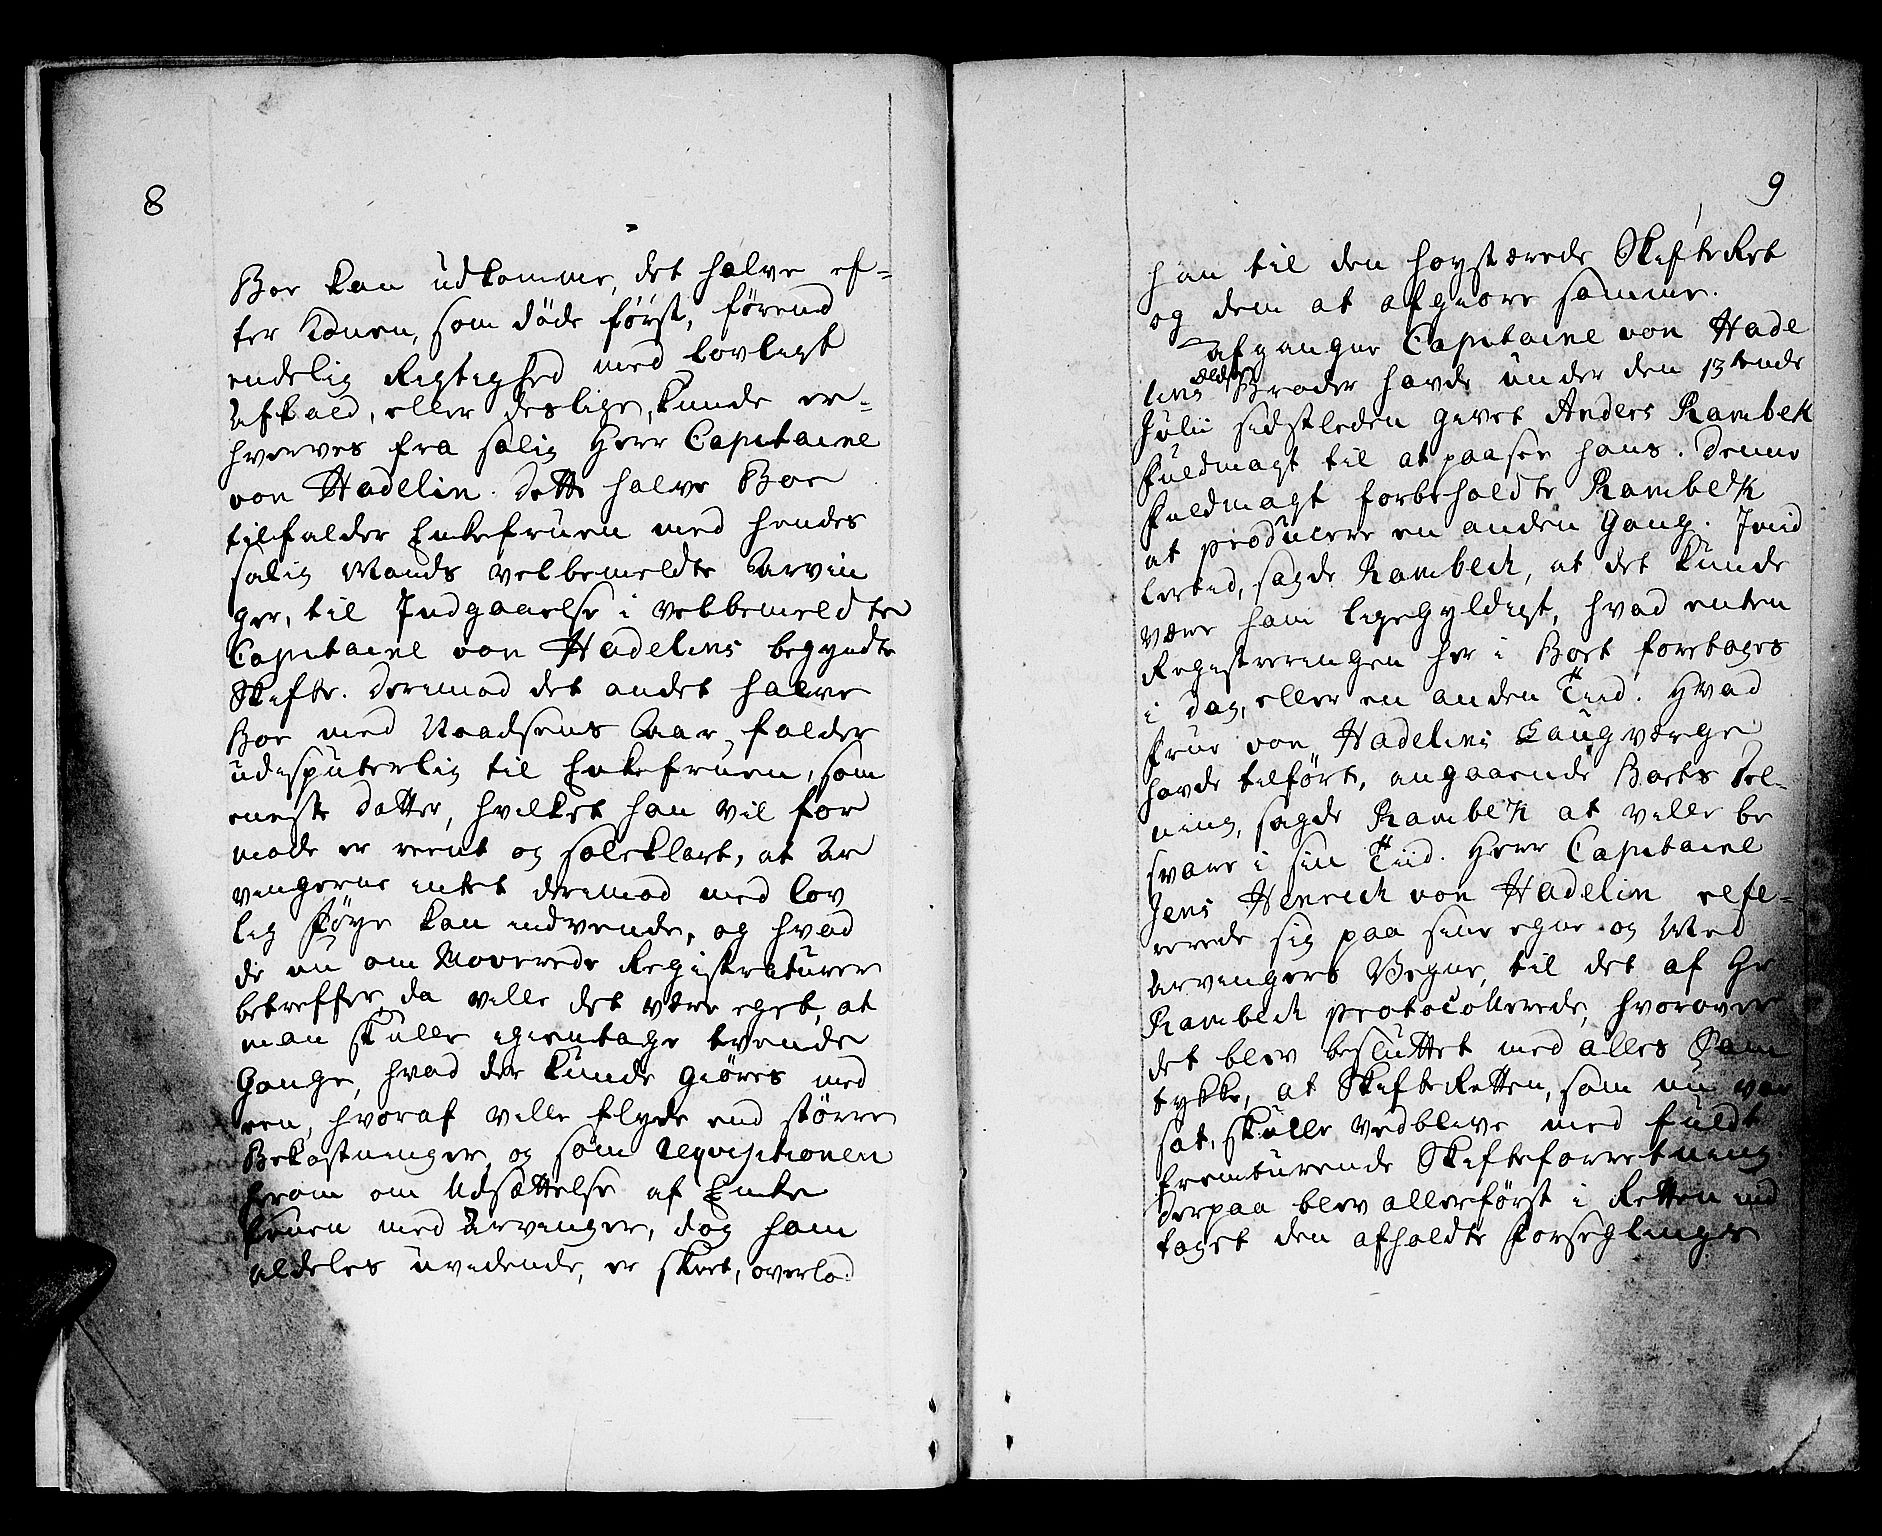 8
Boe kan udkomme, det halve ef-
ter Konen, som døde først, førend
endelig Rigtighed med lovligt
Afkald, eller deslige, kunde er-
hverves fra salig Herr Capitaine
von Hadelin. Dette halve Boe
tilfalder Enkefruen med hendes
salig Mands velbemeldte Arvin
ger, til Indgaaelse i velbemeldte
Capitaine von Hadelins begyndte
Skifte. Derimod det andet halve
Boe med Naadsens Aar, falder
udisputerlig til Enkefruen, som
eneste Datter, hvilket han vil for
mode er reent og soleklart, at Ar
vingerne intet derimod med lov
lig Føye kan indvende, og hvad
de nu om Moverede Registraturer
betreffer, da ville det være eget, at
man skulle igientage tvende
Gange, hvad der kunde giøres med
een, hvoraf ville flyde end større
Bekostninger, og som Requisitionen
herom om Udsættelse af Enke
fruen med Arvinger, dog ham
aldeles uvidende, er skeet, overlod
9
han til den høystærede SkifteRet
og dem at afgiøre samme.
Afgangne Capitaine von Hade
lins ældste Broder havde under den 13tende
Julii sidstleden givet Anders Rambek
Fuldmagt til at paasee hans. Denne
Fuldmagt forbeholdte Rambek
at producere en anden Gang. Imid
lertid, sagde Rambeck, at det kunde
være ham ligegyldigt, hvad enten
Registreringen her i Boet foretages
i Dag, eller en anden Tiid. Hvad
Frue von Hadelins Laugværge
havde tilført, angaaende Boets Deel-
ning, sagde Rambek at ville be
svare i sin Tiid. Herr Capitaine
Jens Henrich von Hadelin refe-
rerede sig paa sine egne og Med
Arvingers Vegne, til det af Hr
Rambeck protocollerede, hvorover
det blev besluttet med alles Sam
tykke, at SkifteRetten, som nu var
sat, skulle vedblive med fuldt
fremturende Skifteforretning.
Derpaa blev allerførst i Retten ind
taget den afholdte Forseglings